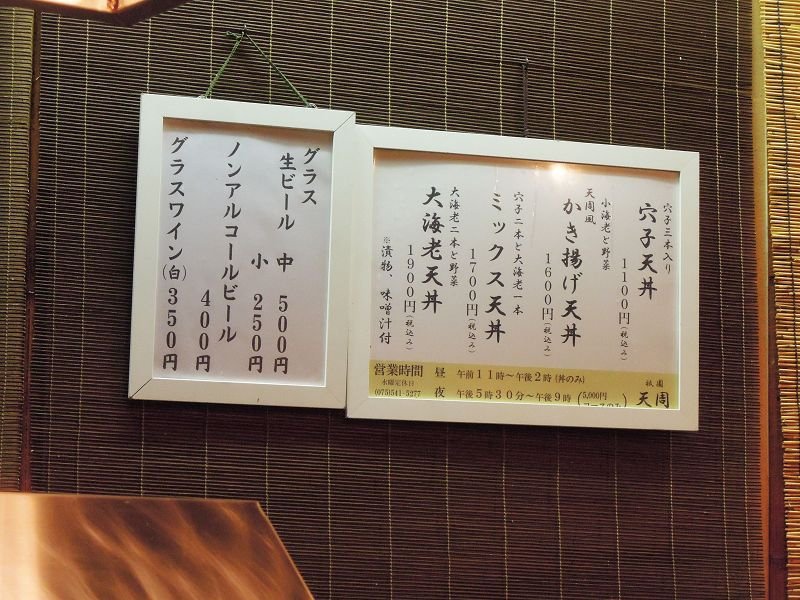 グラス
生ビール 中 500円
小 250円
ノンアルコールビール
400円
グラスワイン(白) 350円
穴子三本入り
穴子天丼
1100円(税込み)
小海老と野菜
天周風
かき揚げ天丼
1600円(税込み)
穴子二本と大海老一本
ミックス天丼
1700円(税込み)
大海老二本と野菜
大海老天丼
1900円(税込み)
※漬物、味噌汁付
営業時間 昼 午前11時〜午後2時(丼のみ)
水曜定休日
(075)541-5277 夜 午後5時30分〜午後9時(5,000円コースのみ)
祇園
天周